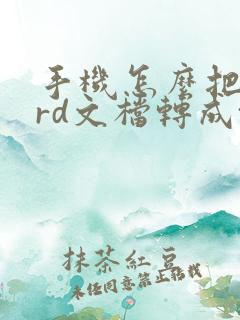 手機怎麼把
rd文檔轉成
抹茶紅豆
未經同意禁止轉載